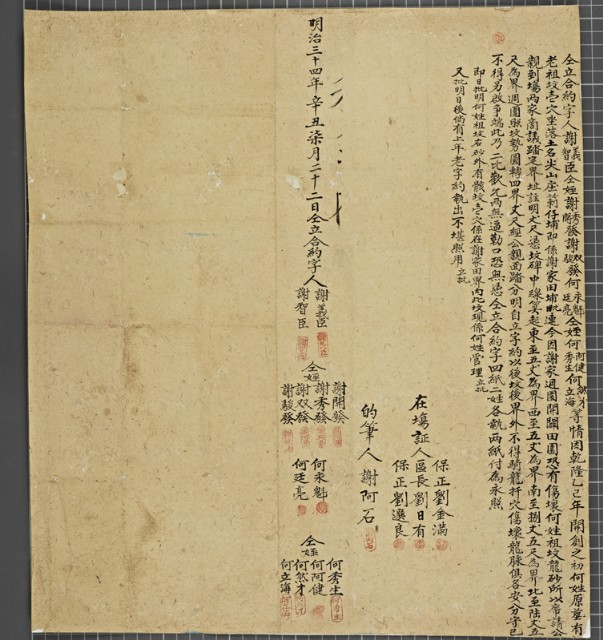 仝立合約字人謝義臣智臣仝姪謝秀發開發謝双發駿發何永魁廷亮仝姪何阿健秀生何然才立海等情因乾隆乙巳年開創之初何姓原塟有
老祖坟壱穴坐落土名尖山崖莿仔埔即係謝家田埔毗連今因謝家週圍開闢田園恐有傷壞何姓祖坟龍砂所以席請公
親到塲両家啇議踏定界址註明丈尺憑坟碑中線筭起東至五丈為界西至五丈為界南至捌丈五尺為界北至陸丈五
尺為界週圍照坟勢圓轉四界丈尺經公親面踏分明自立字約以後坟後界外不得騎龍扦穴傷壞龍脉俱各安分守己
不得另啟争端此乃二比歡允両無逼勒口恐無憑仝立合約字四紙二姓各執両紙付為永照
即日批明何姓祖坟右砂外有骸坟壱穴係在謝家田界内此坟現係何姓管理立批
又批明日後倘有上年老字約執出不堪照用立批
保正劉金滿
在塲証人區長劉日有
保正劉邊良
的筆人謝阿石
明治三十四年辛丑柒月二十二日仝立合約字人謝義臣
謝智臣
仝姪謝開發
謝秀發
謝双發
謝駿發
何永魁
何廷亮
仝姪何秀生
何阿健
何然才
何立海